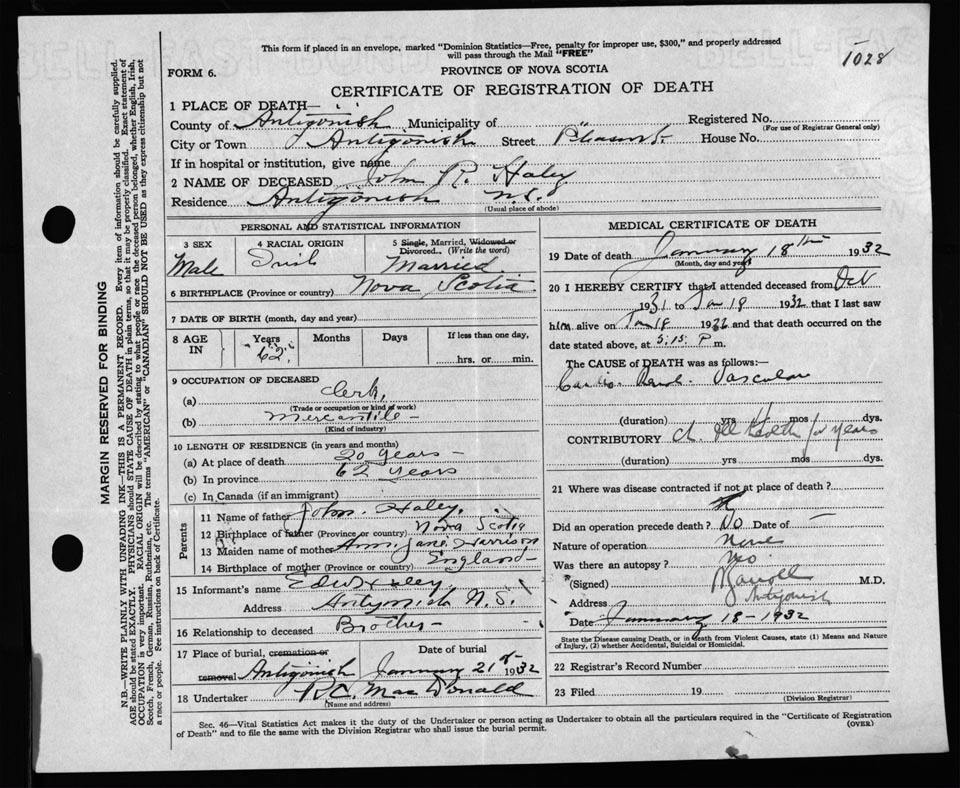 This form if placed in an envelope, marked "Dominion Statistics—Free, penalty for improper use, $300," and properly addressed
will pass through the Mail "FREE"
1028
FORM 6.
PROVINCE OF NOVA SCOTIA
CERTIFICATE OF REGISTRATION OF DEATH
1 PLACE OF DEATH—
County of Antigonish Municipality of " Registered No.
(For use of Registrar General only)
City or Town Antigonish Street Pleasant House No.
If in hospital or institution, give name
2 NAME OF DECEASED John R. Haley
Residence Antigonish N.S.
(Usual place of abode)
PERSONAL AND STATISTICAL INFORMATION
3 SEX Male
4 RACIAL ORIGIN Irish
5 Single, Married, Widowed or
Divorced. (Write the word)
Married
6 BIRTHPLACE (Province or country) Nova Scotia
7 DATE OF BIRTH (month, day and year)
8 AGE IN Years Months Days If less than one day,
62 hrs. or min.
9 OCCUPATION OF DECEASED
(a) Clerk,
(Trade or occupation or kind of work)
(b) Mercantile
(Kind of industry)
10 LENGTH OF RESIDENCE (in years and months)
(a) At place of death 20 years
(b) In province 62 years
(c) In Canada (if an immigrant)
Parents
11 Name of father John Haley,
12 Birthplace of father (Province or country) Nova Scotia
13 Maiden name of mother Ann Jane Harrison
14 Birthplace of mother (Province or country) England
15 Informant's name Edw Haley
Address Antigonish N.S.
16 Relationship to deceased Brother
17 Place of burial, cremation or
removal Antigonish
Date of burial
January 21st 1932
18 Undertaker R.C. MacDonald
(Name and address)
MEDICAL CERTIFICATE OF DEATH
19 Date of death January 18th 1932
(Month, day and year)
20 I HEREBY CERTIFY that I attended deceased from Oct
1931 to Jan 18 1932 that I last saw
him alive on Jan 18 1932 and that death occurred on
date stated above, at 5:15 P m.
The CAUSE of DEATH was as follows:—
Cardio Renal Vascular
(duration) yrs mos dys.
CONTRIBUTORY Ch. Ill Health for years
(duration) yrs mos dys.
21 Where was disease contracted if not at place of death?
Did an operation precede death? No Date of —
Nature of operation None
Was there an autopsy? No
(Signed) M.D.
Address Antigonish
Date January 18 - 1932
State the Disease causing Death, or in death from Violent Causes, state (1) Means and Nature
of Injury, (2) whether Accidental, Suicidal or Homicidal.
22 Registrar's Record Number
23 Filed 19
(Division Registrar)
Sec. 46—Vital Statistics Act makes it the duty of the Undertaker or person acting as Undertaker to obtain all the particulars required in the "Certificate of Registration
of Death" and to file the same with the Division Registrar who shall issue the burial permit.
(OVER)
MARGIN RESERVED FOR BINDING
N.B.—WRITE PLAINLY WITH UNFADING INK—THIS IS A PERMANENT RECORD. Every item of information should be carefully supplied.
AGE should be stated EXACTLY. PHYSICIANS should STATE CAUSE OF DEATH in plain terms, so that it may be properly classified. Exact statement of
OCCUPATION is very important. RACIAL ORIGIN will be described by stating to what people or race the deceased person belonged, whether English, Irish,
Scotch, French, German, Russian, Ruthenian, etc. The terms "AMERICAN" or "CANADIAN" SHOULD NOT BE USED as they express citizenship but not
a race or people. See instructions on back of Certificate.